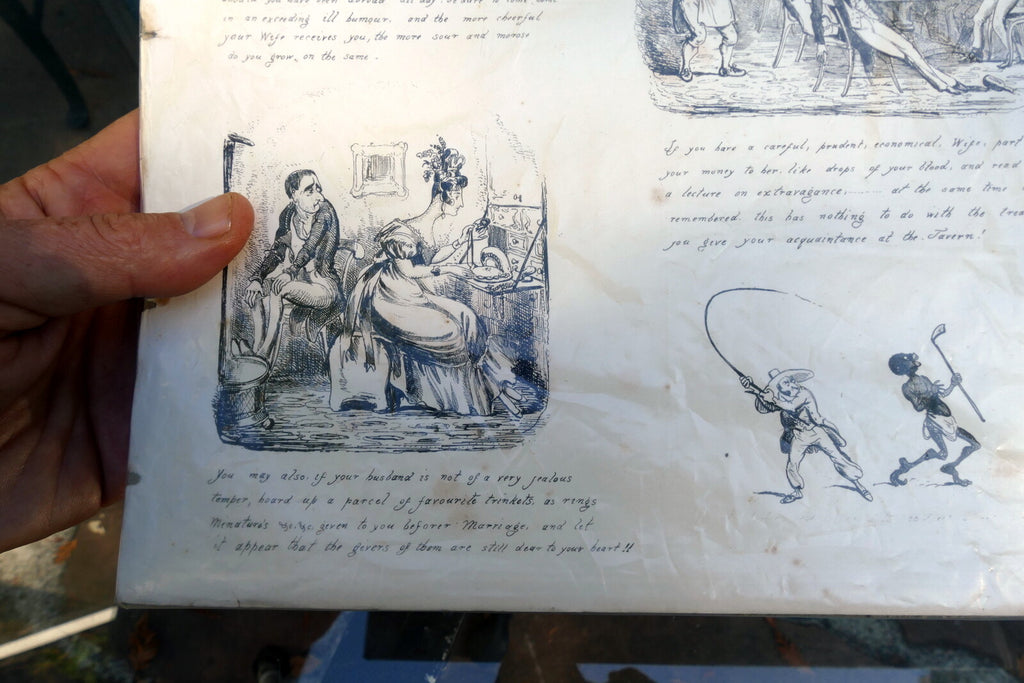 in an exceeding ill humour, and the more cheerful
your Wife receives you, the more sour and morose
do you grow, on the same.
If you have a careful, prudent, economical, Wife, part
your money to her, like drops of your blood, and read
a lecture on extravagance, ------ at the same time
remembered, this has nothing to do with the
you give your acquaintance at the Tavern!
You may also, if your husband is not of a very jealous
temper, hoard up a parcel of favourite trinkets, as rings
Menatures &c. &c. given to you beforer Marriage, and let
it appear that the givers of them are still dear to your heart!!